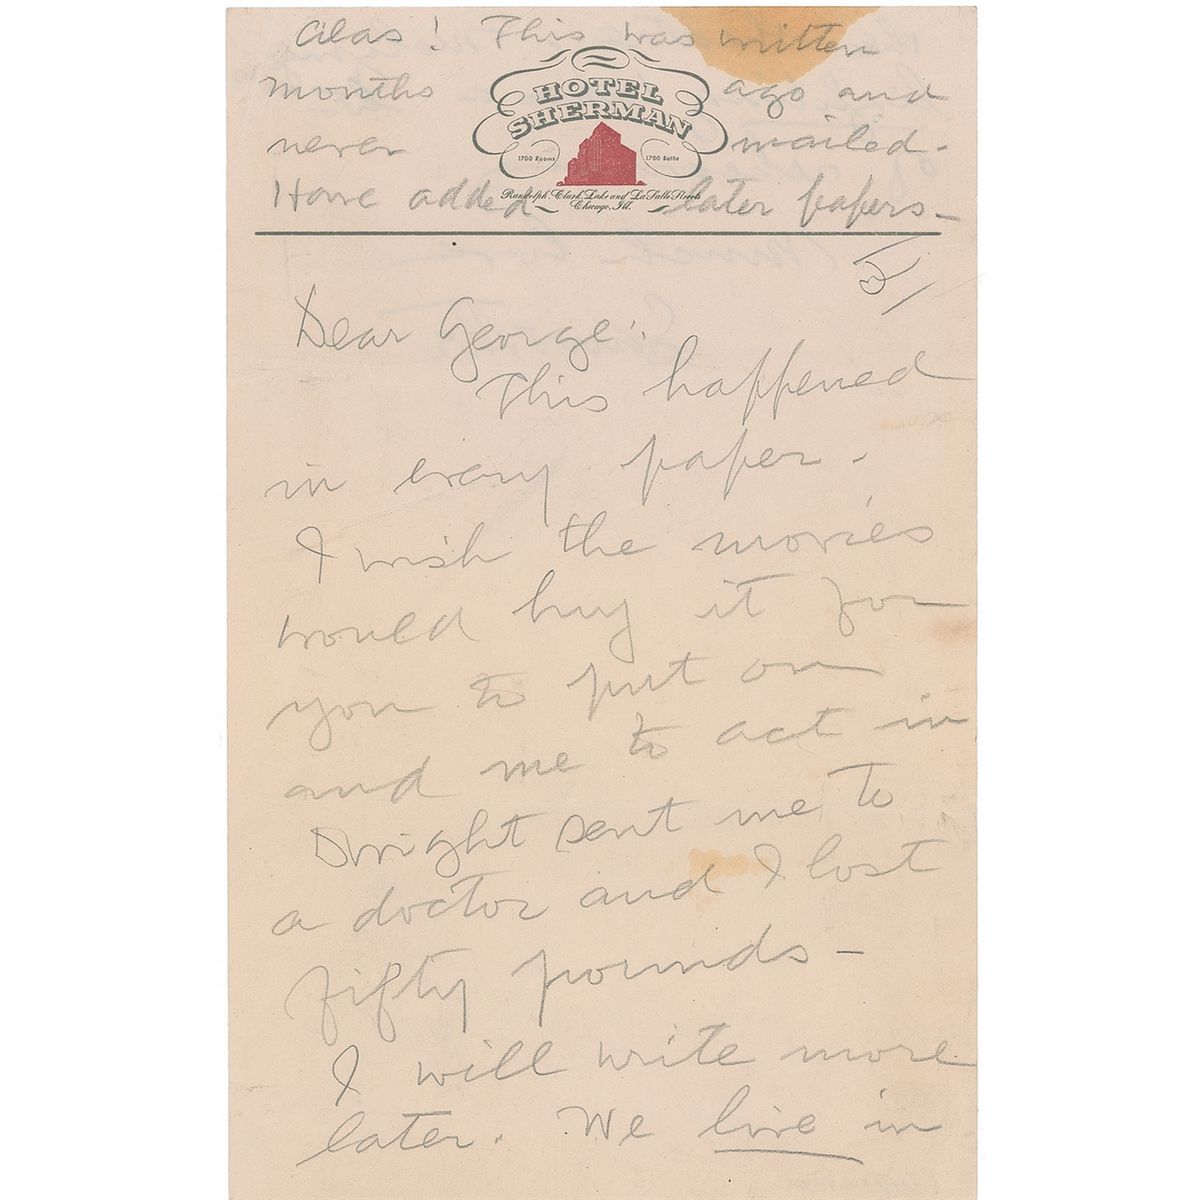 Alas! This was written
months ago and
never mailed.
Have added later papers—
HOTEL
SHERMAN
1700 Rooms 1700 Baths
Randolph, Clark, Lake and La Salle Streets
Chicago, Ill.
Dear George:
This happened
in every paper.
I wish the movies
would buy it for
you to put on
and me to act in
Dwight sent me to
a doctor and I lost
fifty pounds—
I will write more
later. We live in